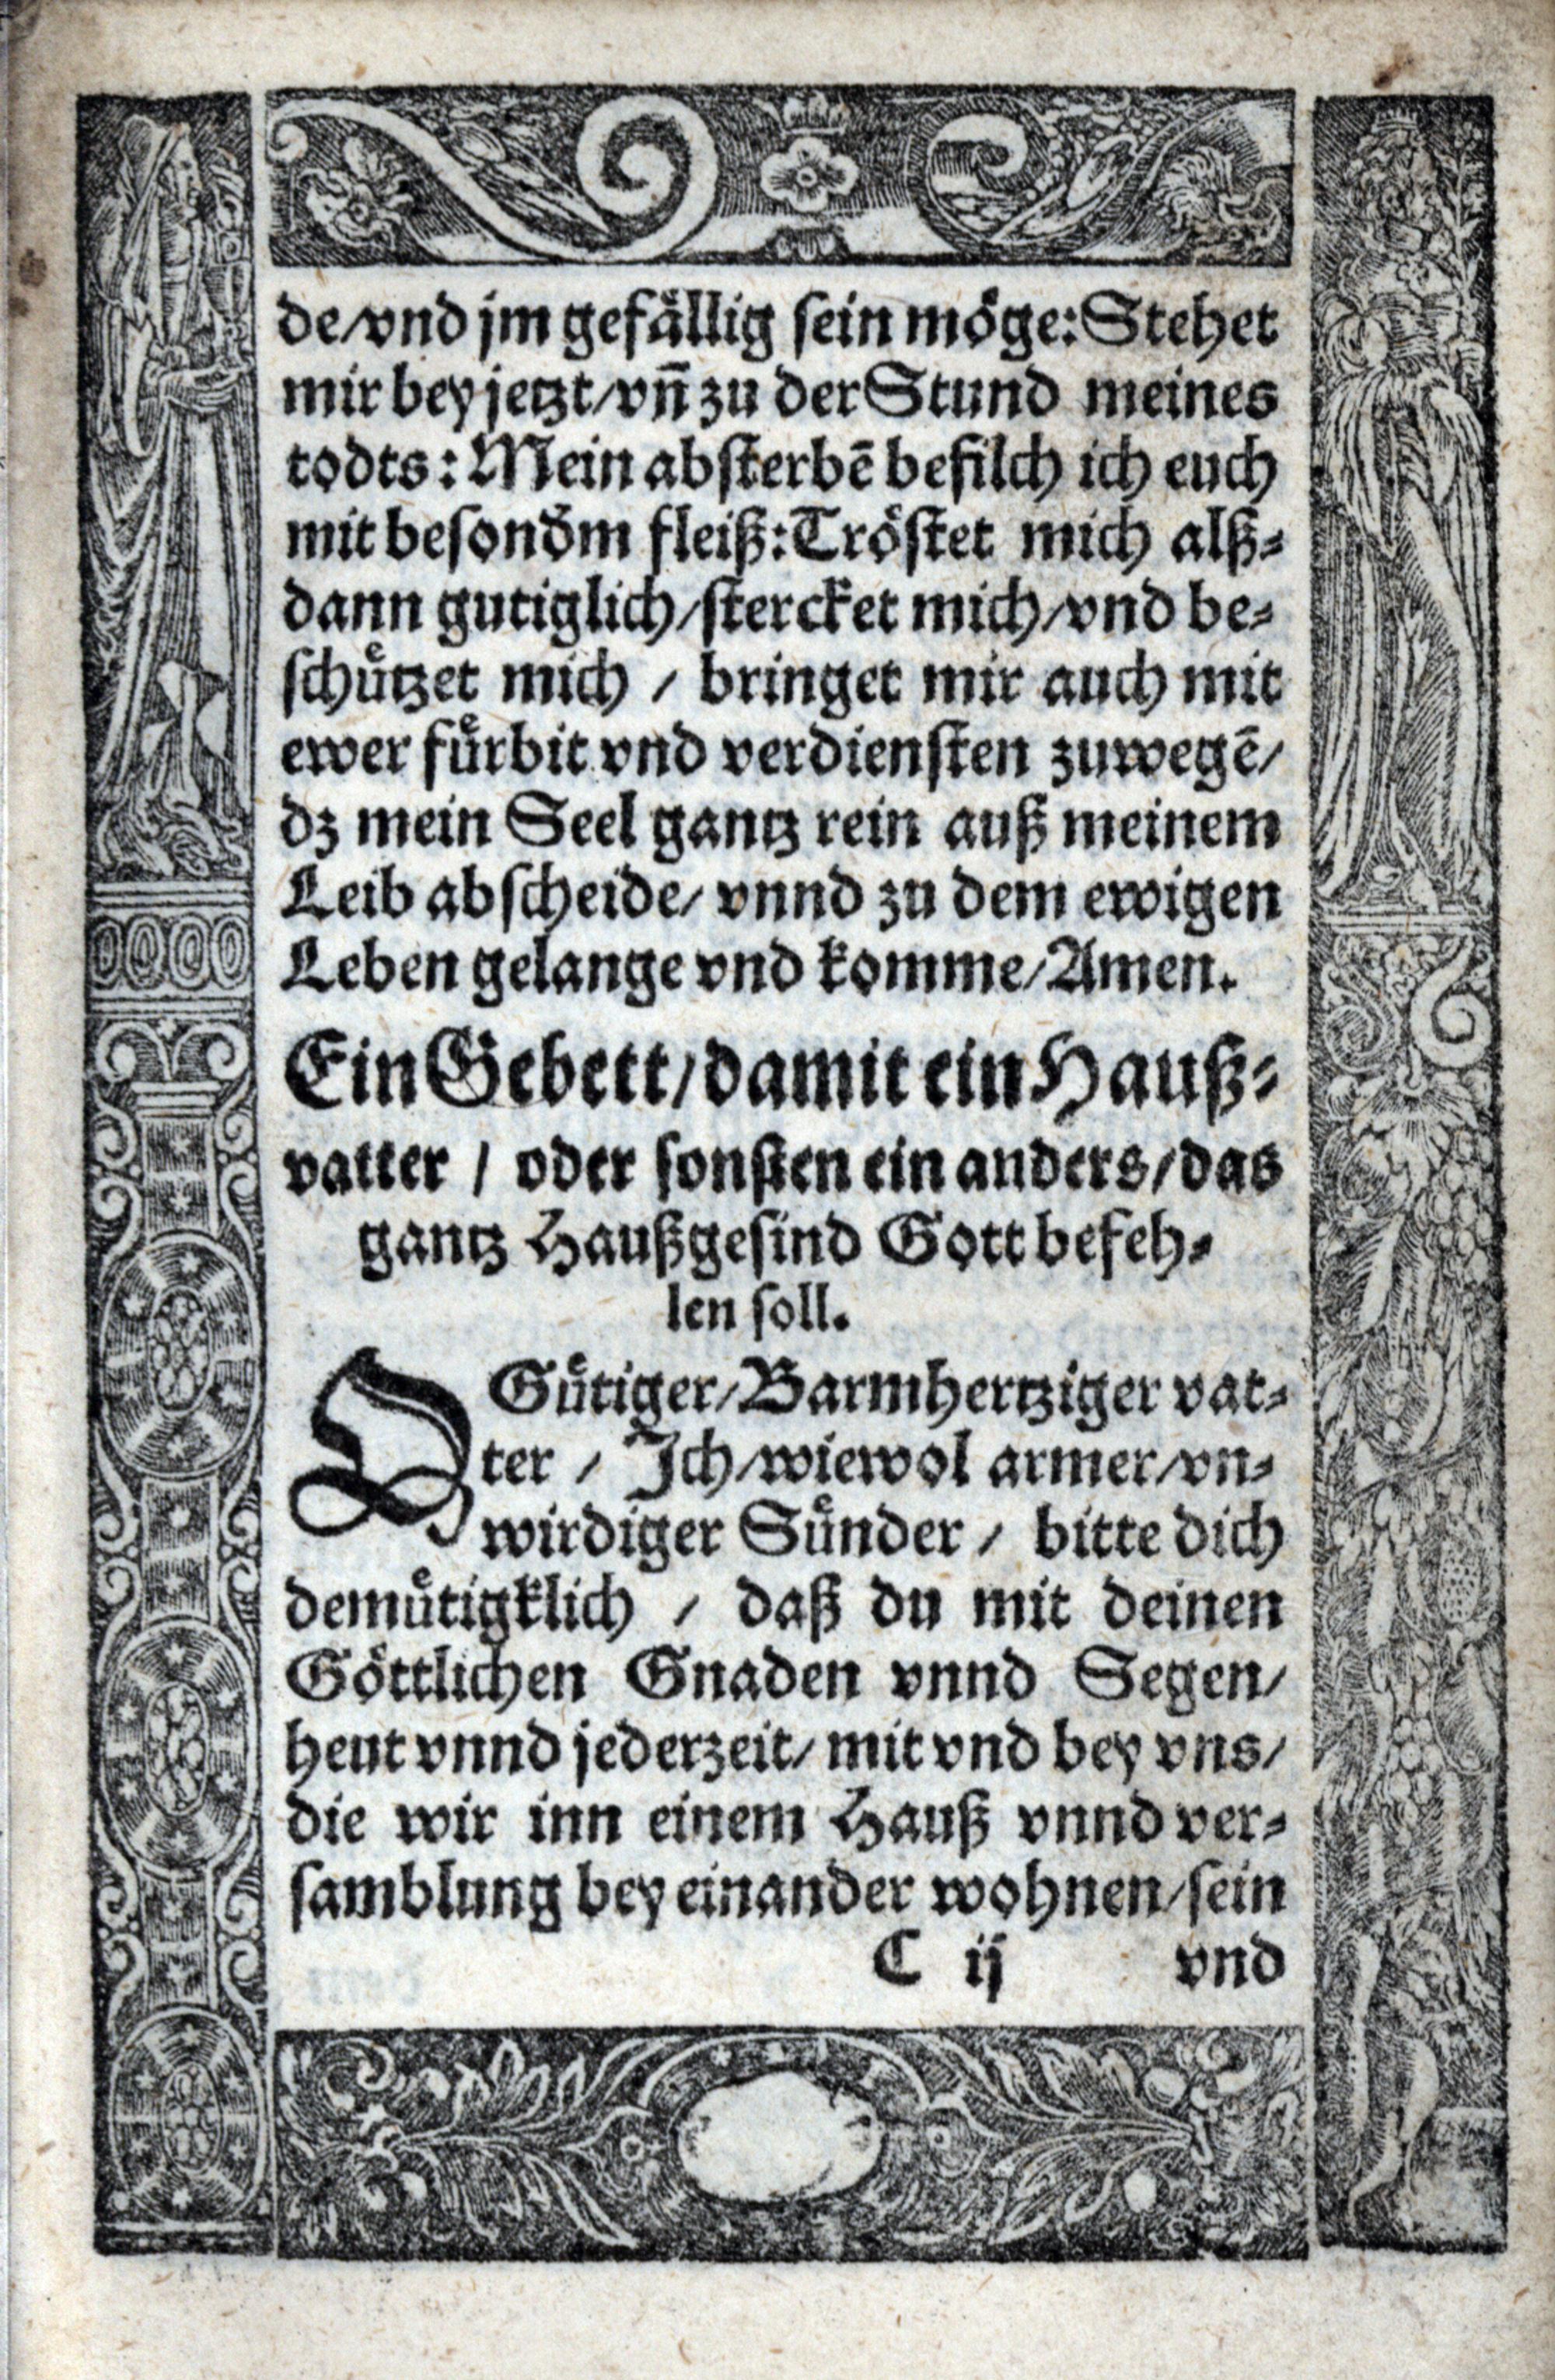 de/vnd jm gefaͤllig sein moͤge: Stehet
mir bey jetzt/vñ zu der Stund meines
todts: Mein absterbē befilch ich euch
mit besondm fleiß: Troͤstet mich alß⸗
dann gutiglich/stercket mich/vnd be⸗
schuͤtzet mich / bringet mir auch mit
ewer fuͤrbit vnd verdiensten zuwegē/
dz mein Seel gantz rein auß meinem
Leib abscheide/ vnnd zu dem ewigen
Leben gelange vnd komme/Amen.
Ein Gebett/damit ein Hauß⸗
vatter / oder sonsten ein anders/das
gantz Haußgesind Gott befeh⸗
len soll.
O Guͤtiger/Barmhertziger vat⸗
ter / Ich/wiewol armer/vn⸗
wirdiger Suͤnder / bitte dich
demuͤtigklich / daß du mit deinen
Goͤttlichen Gnaden vnnd Segen/
heut vnnd jederzeit/ mit vnd bey vns/
die wir inn einem Hauß vnnd ver⸗
samblung bey einander wohnen/sein
C ij vnd